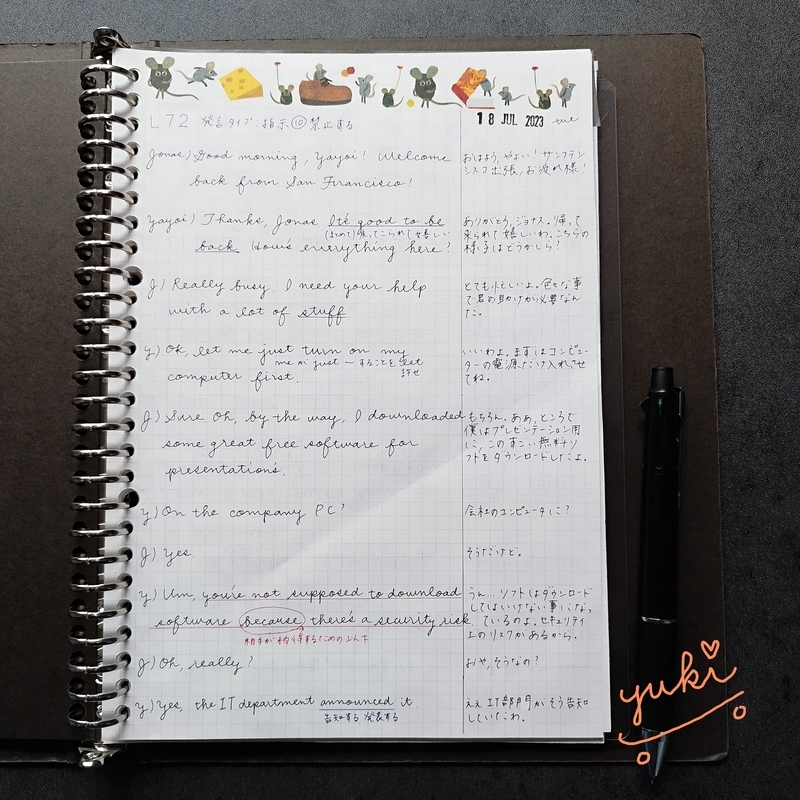 L72 発言タイプ:指示⑩禁止する
18 JUL 2023 tue
Jonas) Good morning, Yayoi! Welcome
back from San Francisco!
おはよう、やよい! サンフラン
シスコ出張、お疲れ様!
Yayoi) Thanks, Jonas. It's good to be
(まとめて)帰ってこられて嬉しい
back. How's everything here?
ありがとう、ジョナス。帰って
来られて嬉しいわ。こちらの
様子はどうかしら?
J) Really busy. I need your help
with a lot of stuff
とても忙しいよ。色々な事
で君の助けが必要なん
だ。
Y) Ok, let me just turn on my
me が just ーすることを
許せ
computer first.
いいわよ。まずはコンピュー
ターの電源だけ入れさせ
てね。
J) Sure. Oh, by the way, I downloaded
some great free software for
presentations.
もちろん。ああ、ところで
僕はプレゼンテーション用
に、このすごい無料ソ
フトをダウンロードしたよ。
Y) On the company PC?
会社のコンピュータに?
J) Yes.
そうだけど。
Y) Um, you're not supposed to download
software because there's a security risk
相手が納得するための
うん... ソフトはダウンロード
してはいけない事になっ
ているのよ。セキュリティ
上のリスクがあるから。
J) Oh, really?
おや、そうなの?
Y) Yes, the IT department announced it.
告知する 発表する
ええ IT部門がそう告知
していたわ。
yuki